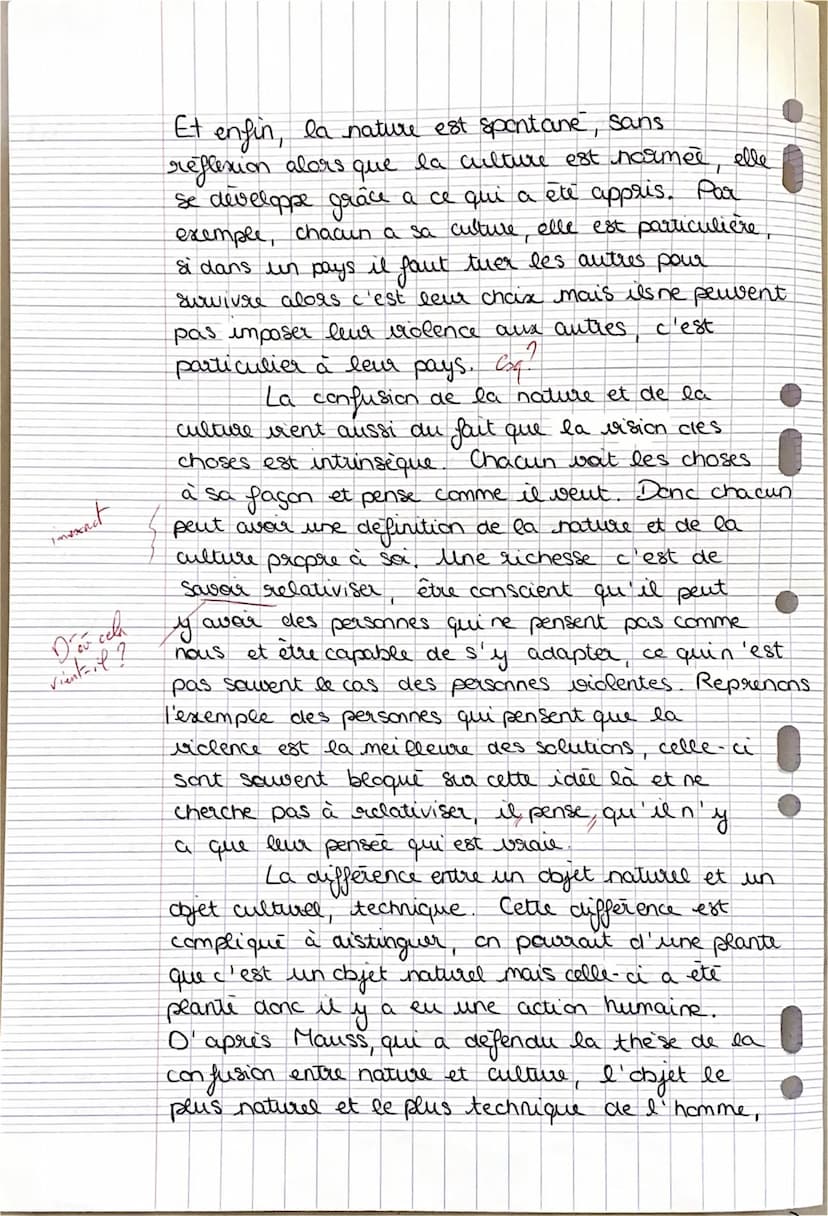 Et enfin, la nature est spontané, sans
réflexion alors que la culture est normée, elle
se développe grâce a ce qui a été appris. Par
exemple, chacun a sa culture, elle est particulière,
si dans un pays il faut tuer les autres pour
survivre alors c'est leur choix mais ils ne peuvent
pas imposer leur violence aux autres, c'est
particulier à leur pays.
La confusion de la nature et de la
culture vient aussi du fait que la vision des
choses est intrinsèque. Chacun voit les choses
à sa façon et pense comme il veut. Donc chacun
inexact
peut avoir une définition de la nature et de la
culture propre à soi. Une richesse c'est de
savoir relativiser, être conscient qu'il peut
D'où cela
vient-il ?
y avoir des personnes qui ne pensent pas comme
nous et être capable de s'y adapter, ce qui n'est
pas souvent le cas des personnes violentes. Reprenons
l'exemple des personnes qui pensent que la
violence est la meilleure des solutions, celle-ci
sont souvent bloqué sur cette idée là et ne
cherche pas à relativiser, il pense, qu'il n'y
a que leur pensée qui est vraie.
La différence entre un objet naturel et un
objet culturel, technique. Cette différence est
compliqué à distinguer, on pourrait d'une plante
que c'est un objet naturel mais celle-ci a été
planté donc il y a eu une action humaine.
D'après Mauss, qui a défendu la thèse de la
confusion entre nature et culture, l'objet le
plus naturel et le plus technique de l'homme,